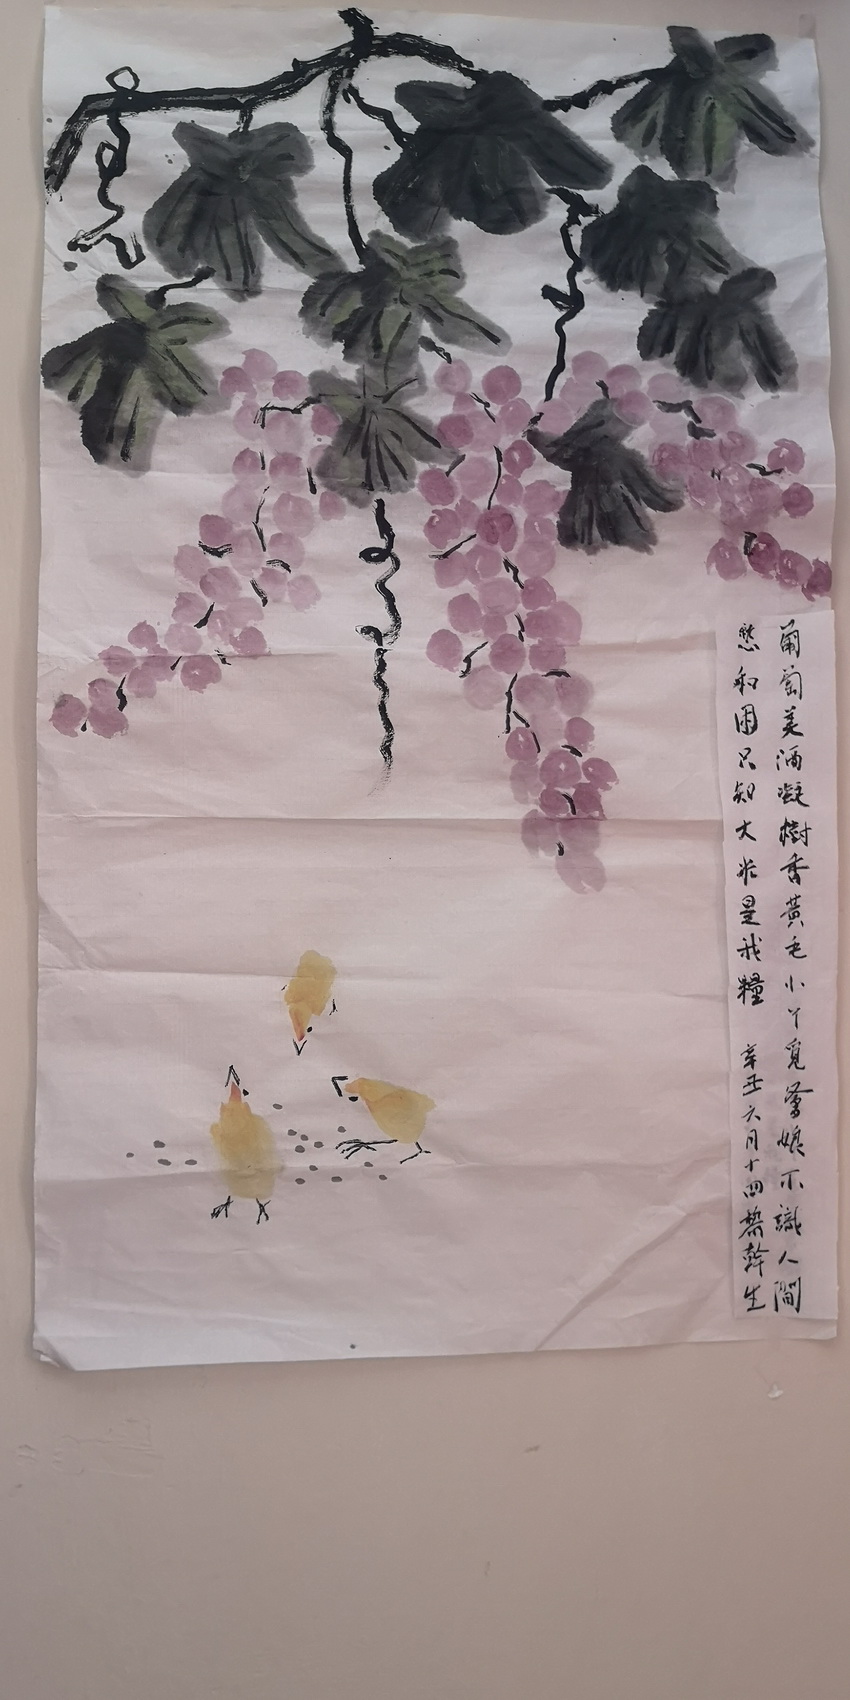 葡萄美酒凝樹香黃毛小丫覓爹娘不識人間
愁和困只知大米是我糧 辛丑六月十四黎幹生